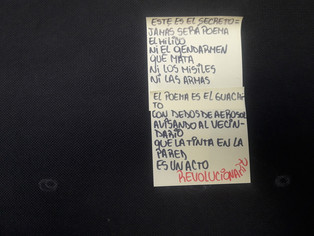 ESTE ES EL SECRETO=
JAMAS SERÁ POEMA
EL MILICO
NI EL GENDARMEN
QUE MATA
NI LOS MISILES
NI LAS ARMAS
EL POEMA ES EL GUACHI-
TO
CON DEDOS DE AEROSOL
AVISANDO AL VECIN-
DARIO
QUE LA TINTA EN LA
PARED
ES UN ACTO
REVOLUCIONARIO